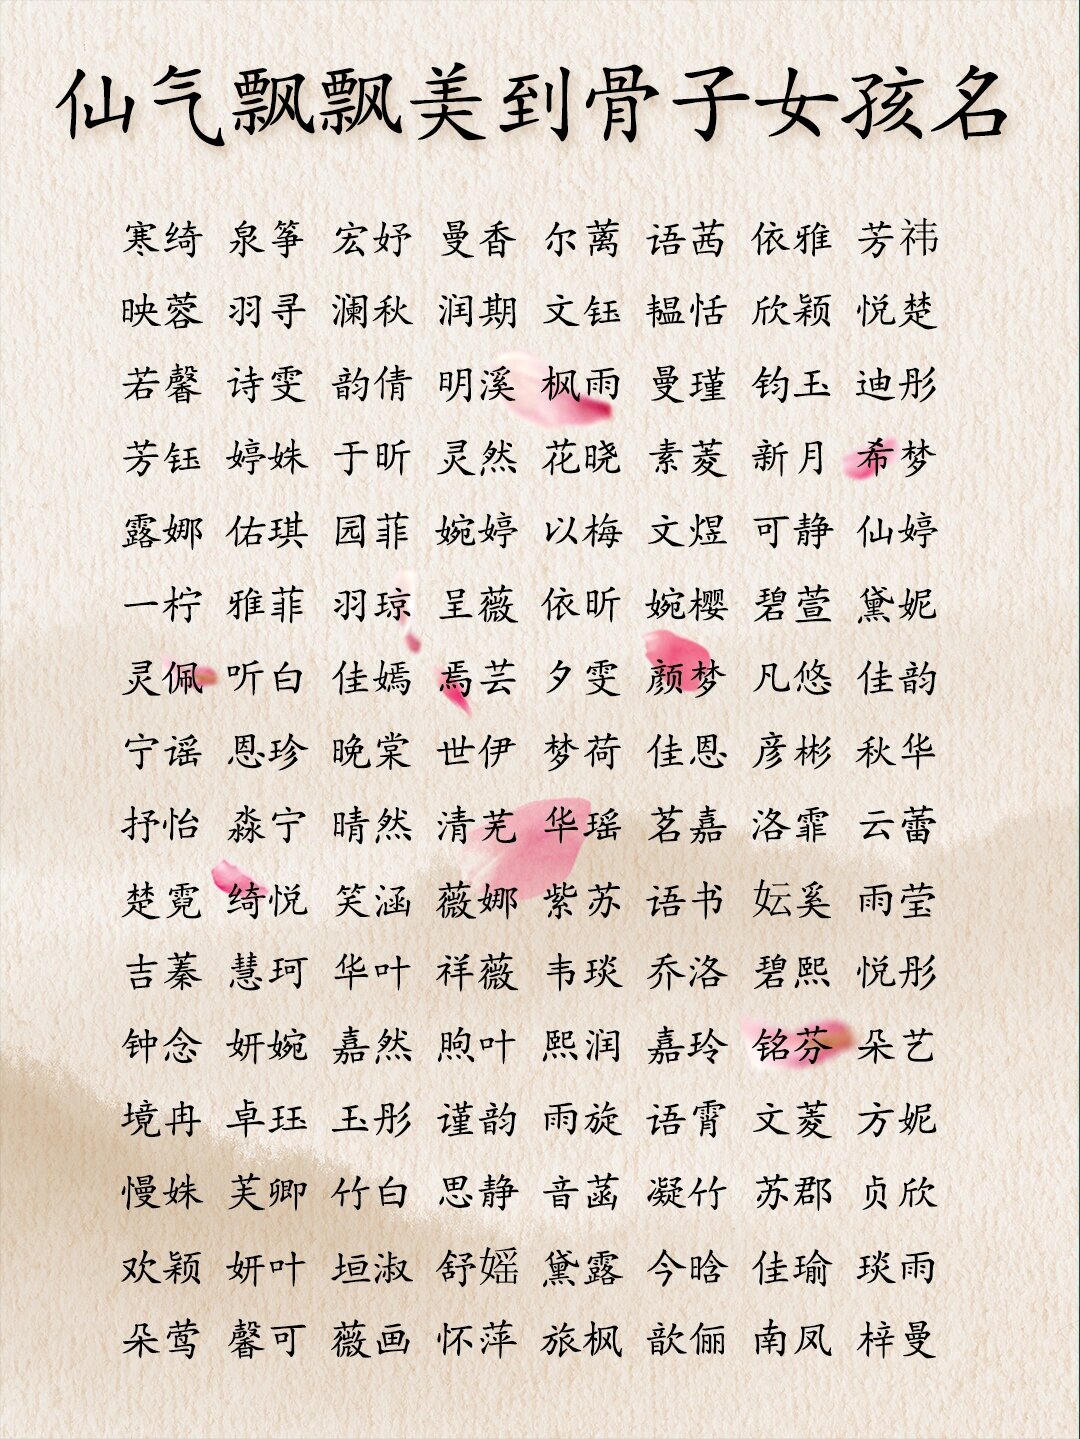 仙气飘飘美到骨子女孩名
寒绮 泉筝 宏妤 曼香 尔蓠 语茜 依雅 芳祎
映蓉 羽寻 澜秋 润期 文钰 韫恬 欣颖 悦楚
若馨 诗雯 韵倩 明溪 枫雨 曼瑾 钧玉 迪彤
芳钰 婷姝 于昕 灵然 花晓 素菱 新月 希梦
露娜 佑琪 园菲 婉婷 以梅 文煜 可静 仙婷
一柠 雅菲 羽琼 呈薇 依昕 婉樱 碧萱 黛妮
灵佩 听白 佳嫣 焉芸 夕雯 颜梦 凡悠 佳韵
宁谣 恩珍 晚棠 世伊 梦荷 佳恩 彦彬 秋华
抒怡 淼宁 晴然 清芜 华瑶 茗嘉 洛霏 云蕾
楚霓 绮悦 笑涵 薇娜 紫苏 语书 妘奚 雨莹
吉蓁 慧珂 华叶 祥薇 韦琰 乔洛 碧熙 悦彤
钟念 妍婉 嘉然 煦叶 熙润 嘉玲 铭芬 朵艺
境冉 卓珏 玉彤 谨韵 雨旋 语霄 文菱 方妮
慢姝 芙卿 竹白 思静 音菡 凝竹 苏郡 贞欣
欢颖 妍叶 垣淑 舒媱 黛露 今晗 佳瑜 琰雨
朵莺 馨可 薇画 怀萍 旅枫 歆俪 南凤 梓曼